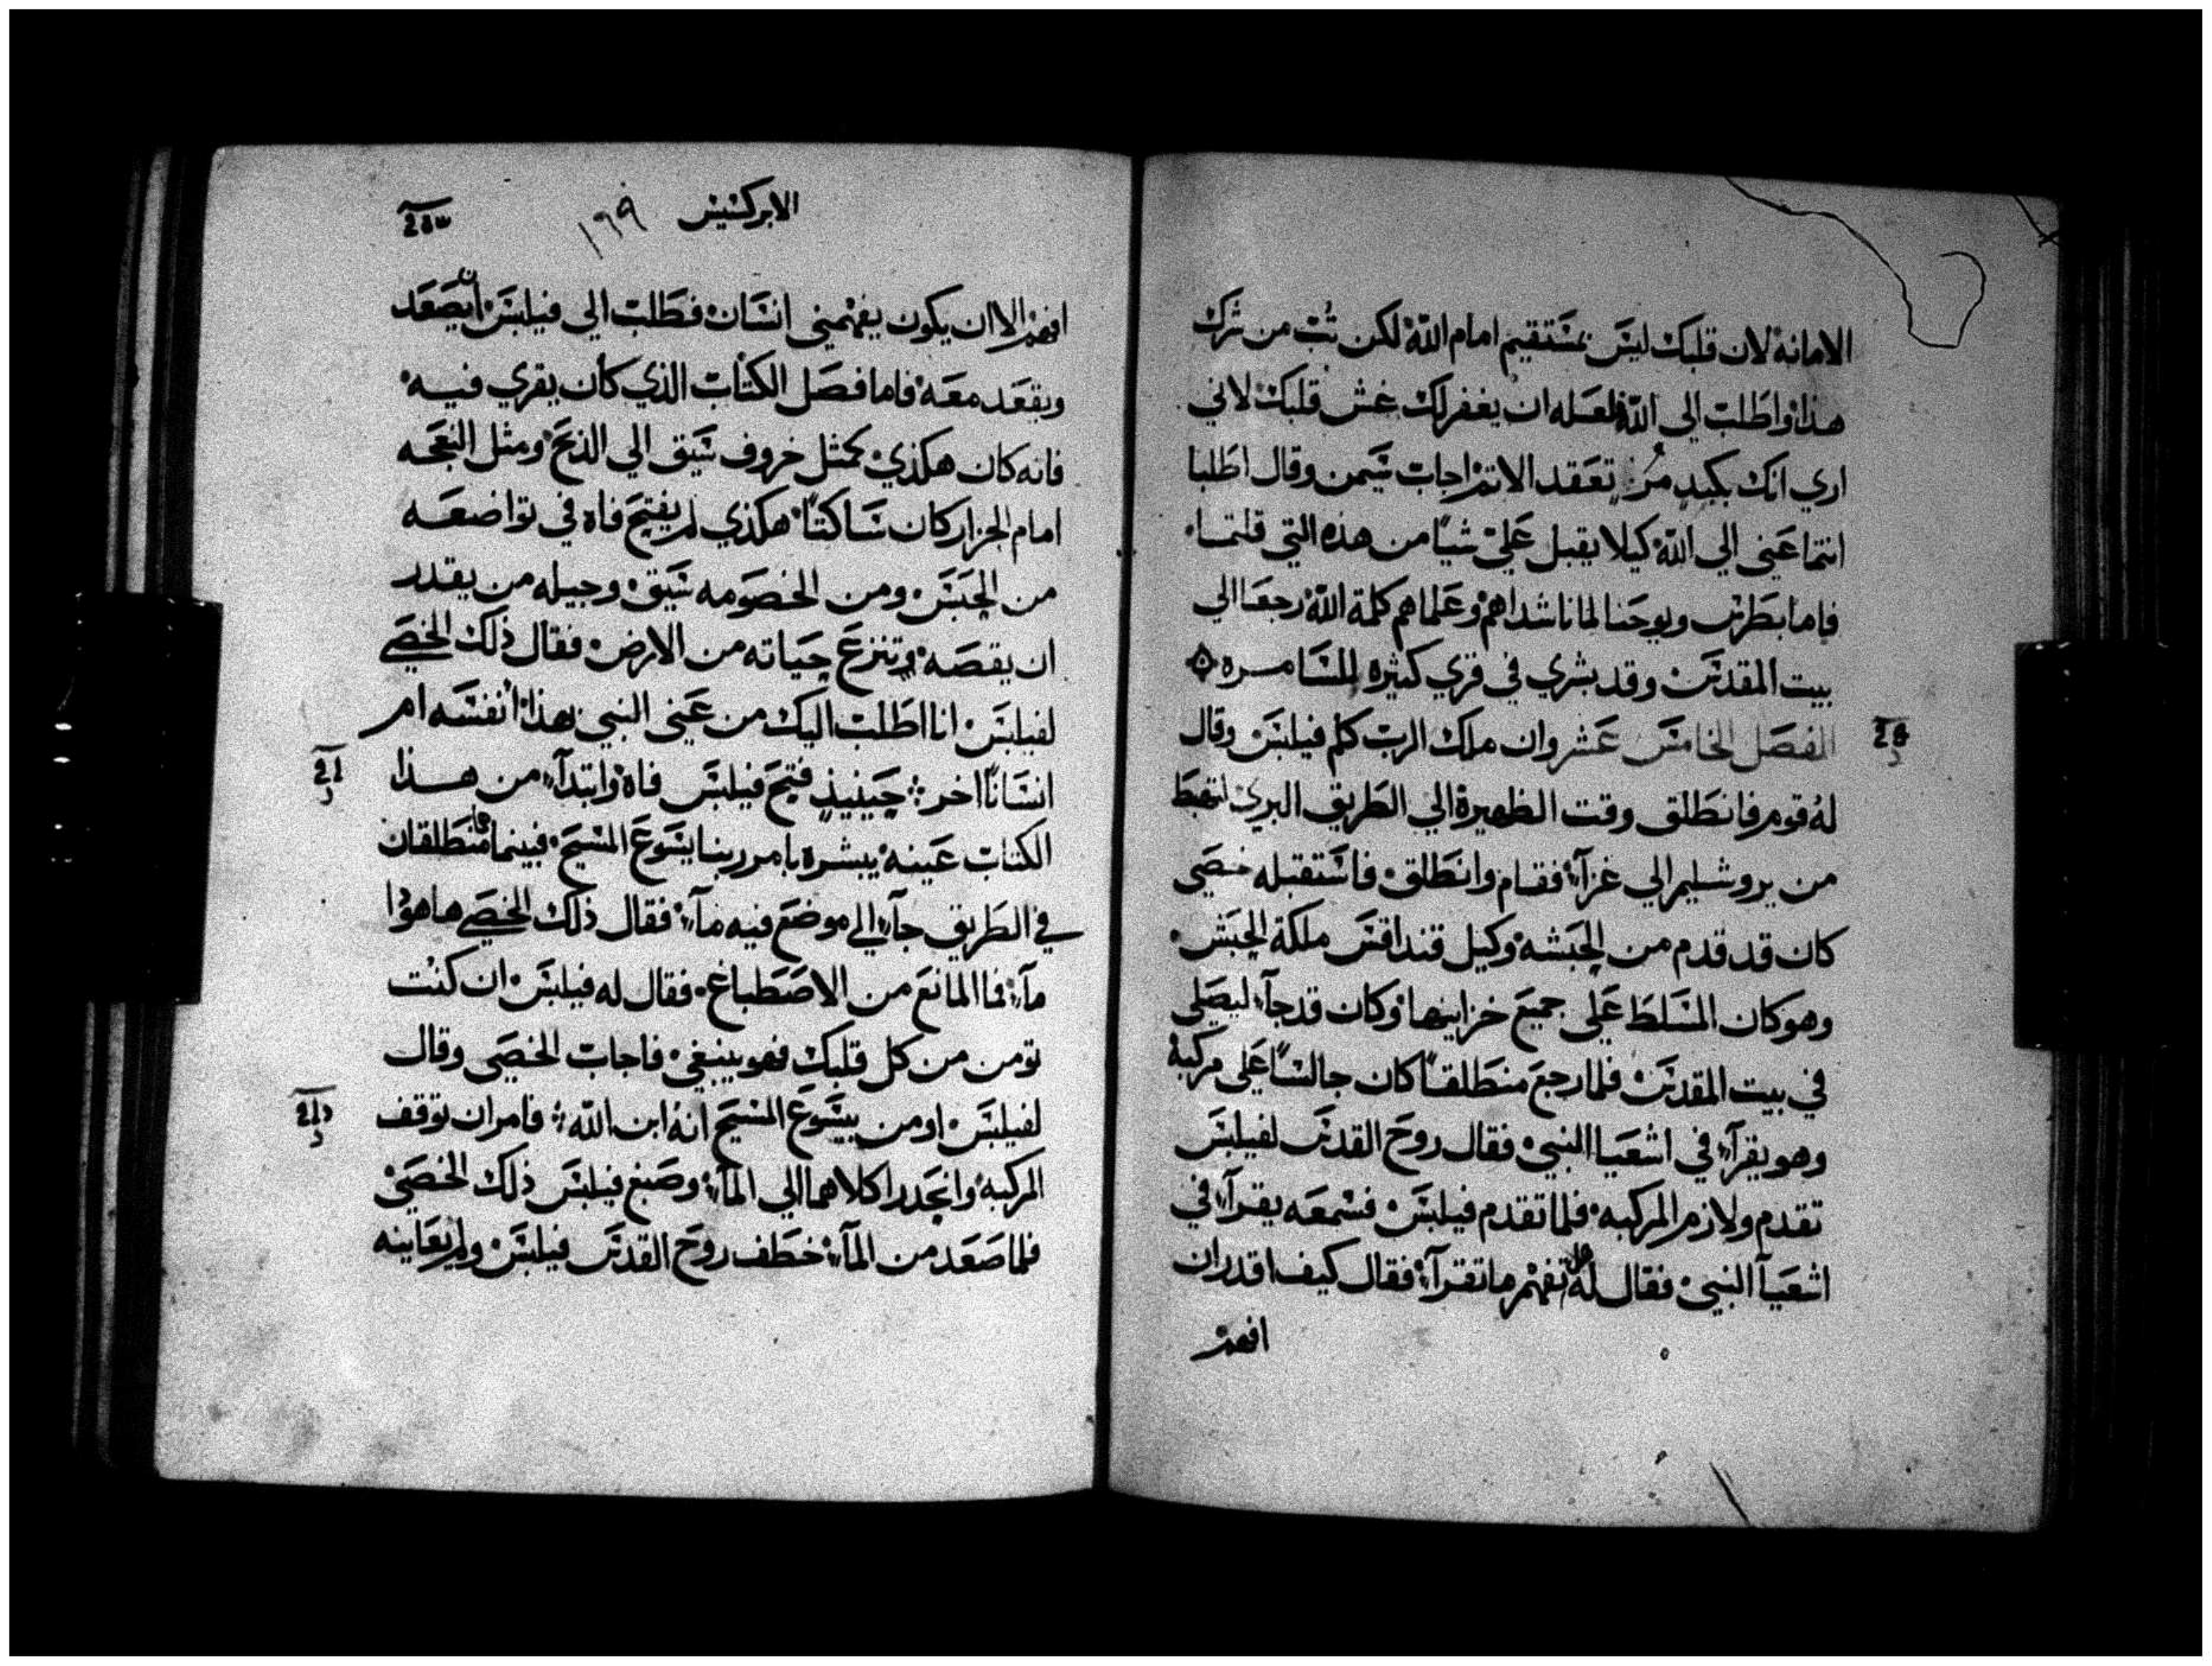 الامانه لان قلبك ليس بمستقيم امام الله لكن تب من شرك
هذا واطلب الي الله لعله ان يغفر لك غش قلبك لاني
اري انك بكبد مر تعقد الاتمزاجات سيمن وقال اطلبا
انتما عني الي الله كيلا يقبل علي شيا من هذه التي قلتما
فاما بطرس ويوحنا لما ناشداهم وعلماهم كلمة الله رجعا الي
بيت المقدس وقد بشري في قري كثيره للسامره
الفصل الخامس عشر وان ملك الرب كلم فيلبس وقال
له قوم فانطلق وقت الظهيرة الي الطريق البري لتهبط
من يروشليم الي غزآء فقام وانطلق فاستقبله خصي
كان قد قدم من الحبشه وكيل قنداقس ملكة الحبش
وهو كان المسلط علي جميع خزاينها وكان قد جآء ليصلي
في بيت المقدس فلما رجع منطلقاً كان جالساً علي مركبة
وهو يقرآء في اشعيا النبي فقال روح القدس لفيلبس
تقدم ولازم المركبه فلما تقدم فيلبس فسمعه يقرآء في
اشعيآ النبي فقال له هل تفهم ما تقرآء فقال كيف اقدر ان
افهم
الابركسيس ١٦٩
افهم الا ان يكون يفهمني انسان فطلب الي فيلبس ان يصعد
ويقعد معه فاما فصل الكتاب الذي كان يقري فيه
فانه كان هكذي كمثل خروف سيق الي الذبح ومثل النعجه
امام الجزار كان ساكتاً هكذي لم يفتح فاه في تواضعه
من الحبس ومن الخصومه سيق وجيله من يقدر
ان يقصه وتنزع حياته من الارض فقال ذلك الخصي
لفيلبس انا اطلب اليك من عني النبي بهذا انفسه ام
انساناً اخر حينيذ فتح فيلبس فاه وابتدآء من هذا
الكتاب عينه يبشره بامر ربنا يسوع المسيح فبينما هما منطلقان
في الطريق جآء الي موضع فيه مآء فقال ذلك الخصي ها هوذا
مآء فما المانع من الاصطباغ فقال له فيلبس ان كنت
تومن من كل قلبك فهو ينبغي فاجاب الخصي وقال
لفيلبس اومن بيسوع المسيح انه ابن الله فامر ان توقف
المركبه وانحدرا كلاهما الي المآء وصبغ فيلبس ذلك الخصي
فلما صعد من المآء خطف روح القدس فيلبس ولم يعاينه